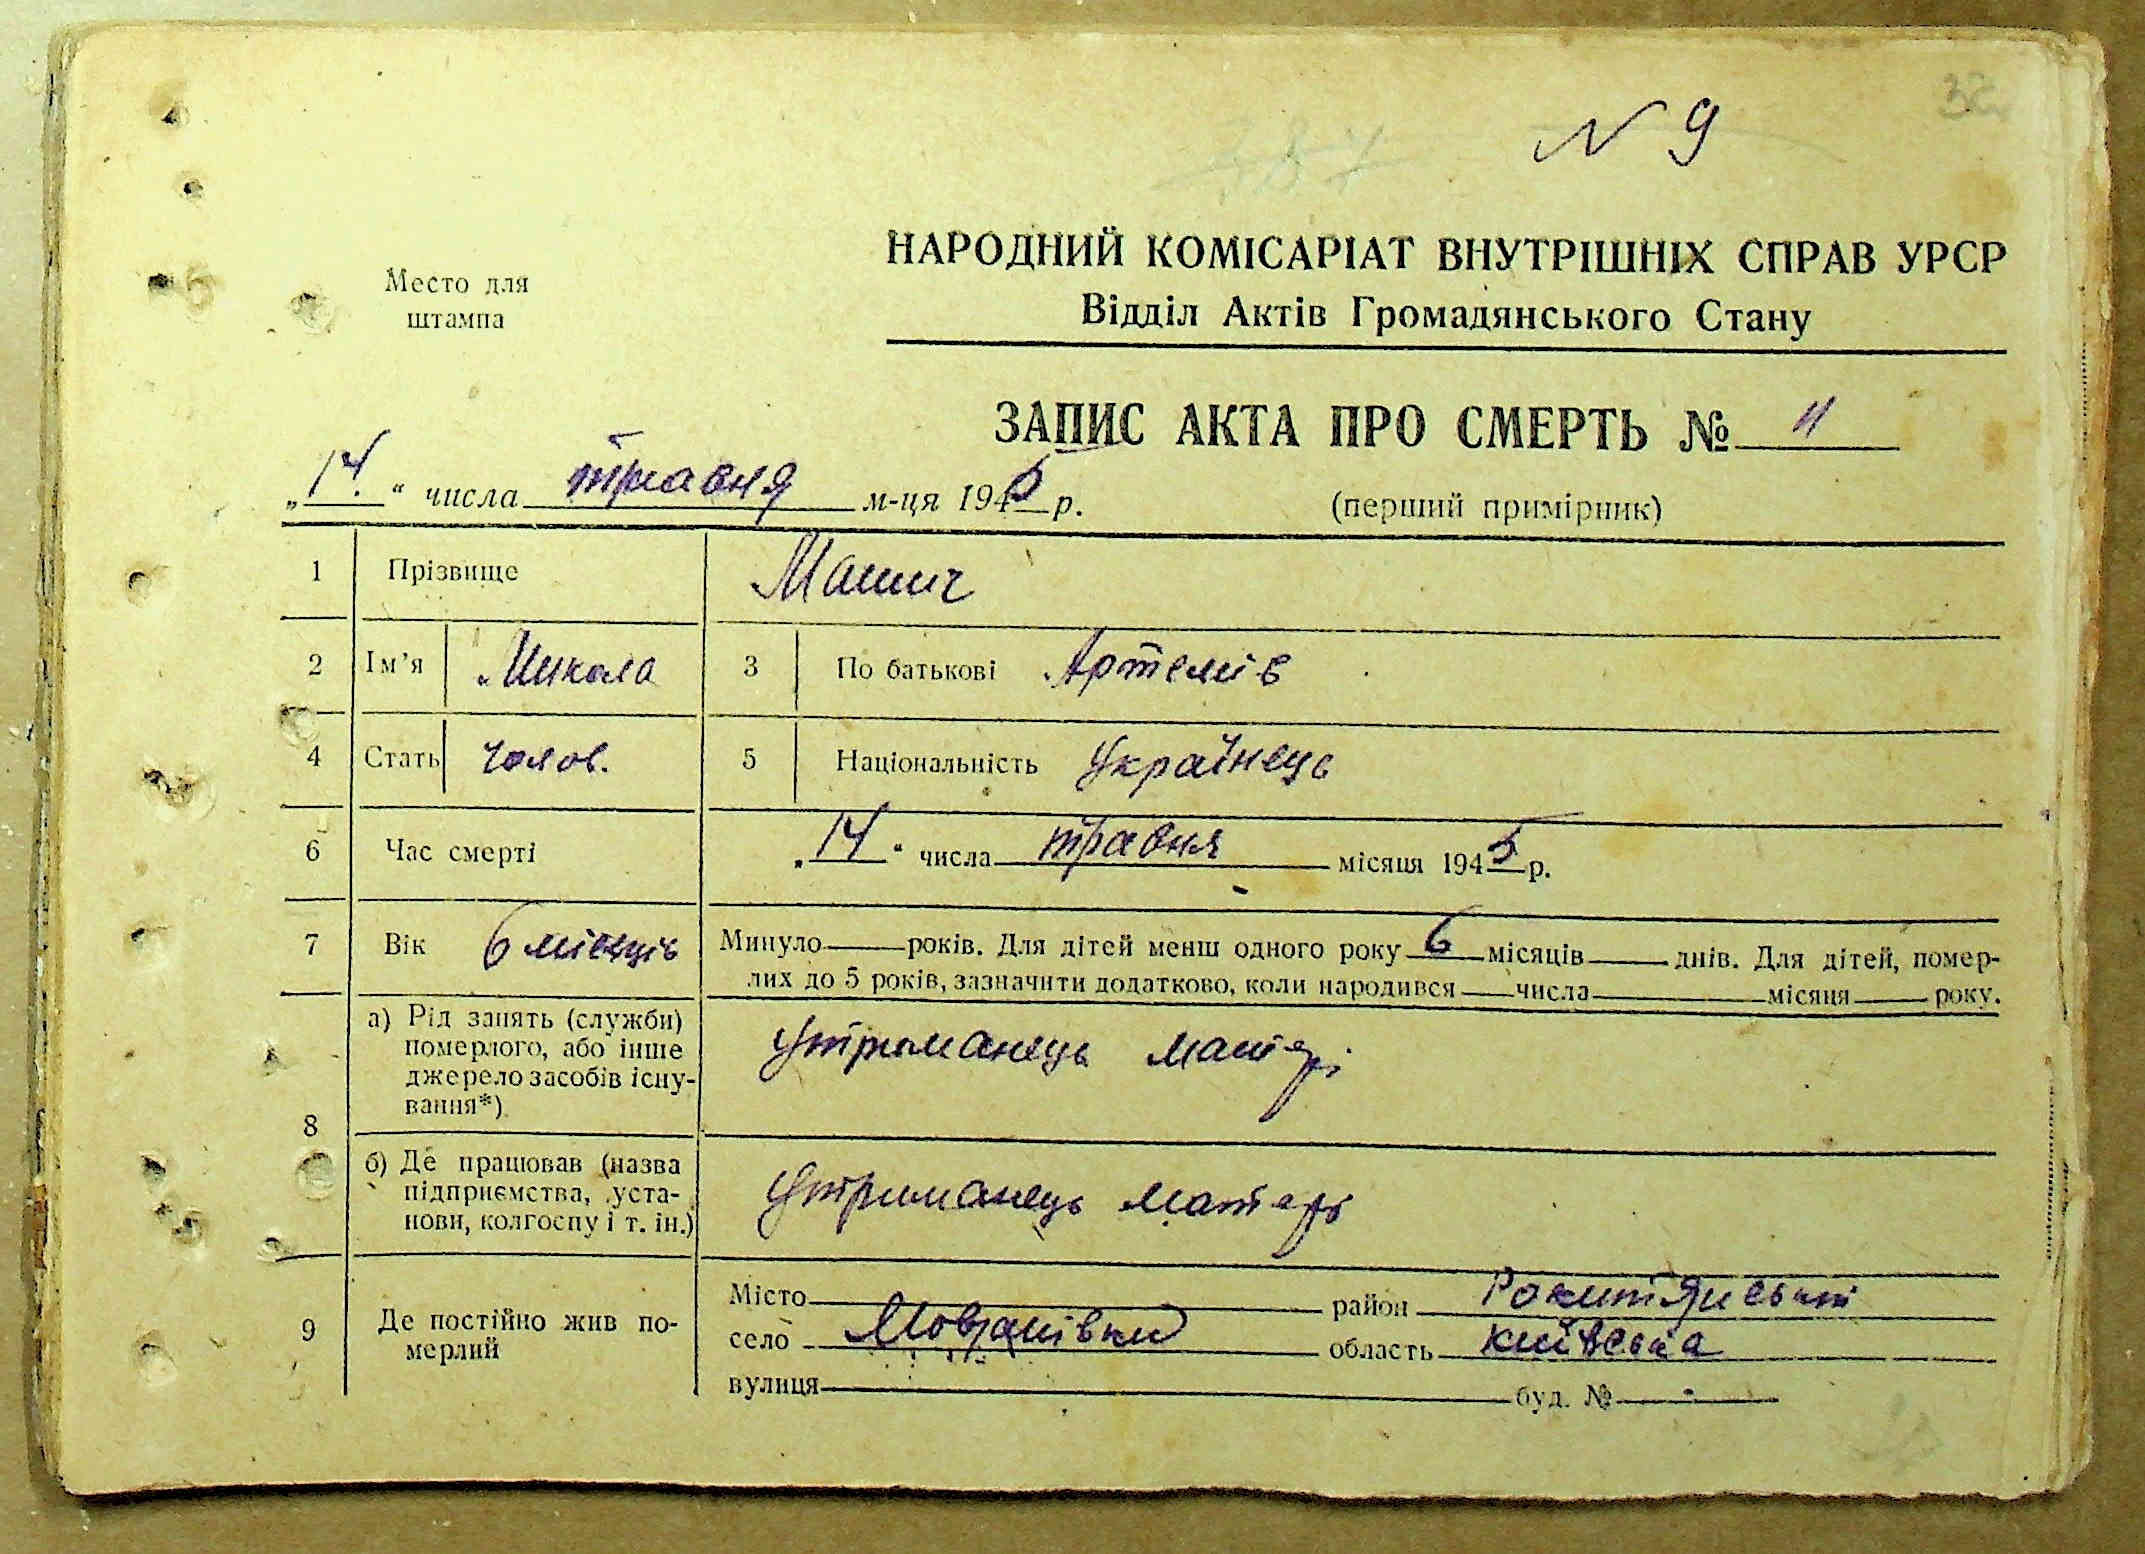 32
N 9
НАРОДНИЙ КОМІСАРІАТ ВНУТРІШНІХ СПРАВ УРСР
Место для
штампа
Відділ Актів Громадянського Стану
ЗАПИС АКТА ПРО СМЕРТЬ № 11
„14“ числа травня м-ця 1945 р.
(перший примірник)
1 Прізвище Машич
2 Ім’я Микола 3 По батькові Артемів
4 Стать чолов. 5 Національність Українець
6 Час смерті „14“ числа травня місяця 1945 р.
7 Вік 6 місяців Минуло років. Для дітей менш одного року 6 місяців днів. Для дітей, помер-
лих до 5 років, зазначити додатково, коли народився числа місяця року.
8 а) Рід занять (служби)
померлого, або інше
джерело засобів існу-
вання*)
утриманець матері
б) Де працював (назва
підприємства, уста-
нови, колгоспу і т. ін.)
утриманець матері
9 Де постійно жив по-
мерлий
Місто район
село область Київська
вулиця буд. № -